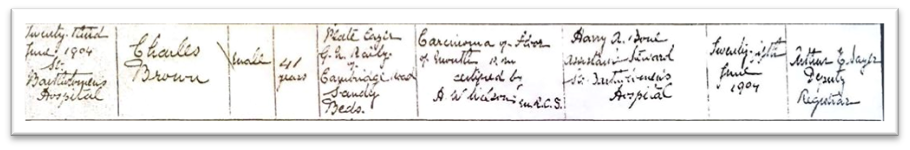 Twenty-third
June 1904
St.
Bartholomew's
Hospital
Charles
Brown
Male
41
years
Plate Layer
G. N. Railway
of
Cambridge Road
Sandy
Beds.
Carcinoma of Floor
of mouth
certified by
A W M.R.C.S.
Harry A.
Assistant Steward
St. Bartholomew's
Hospital
Twenty-fifth
June
1904
Arthur E.
Deputy
Registrar